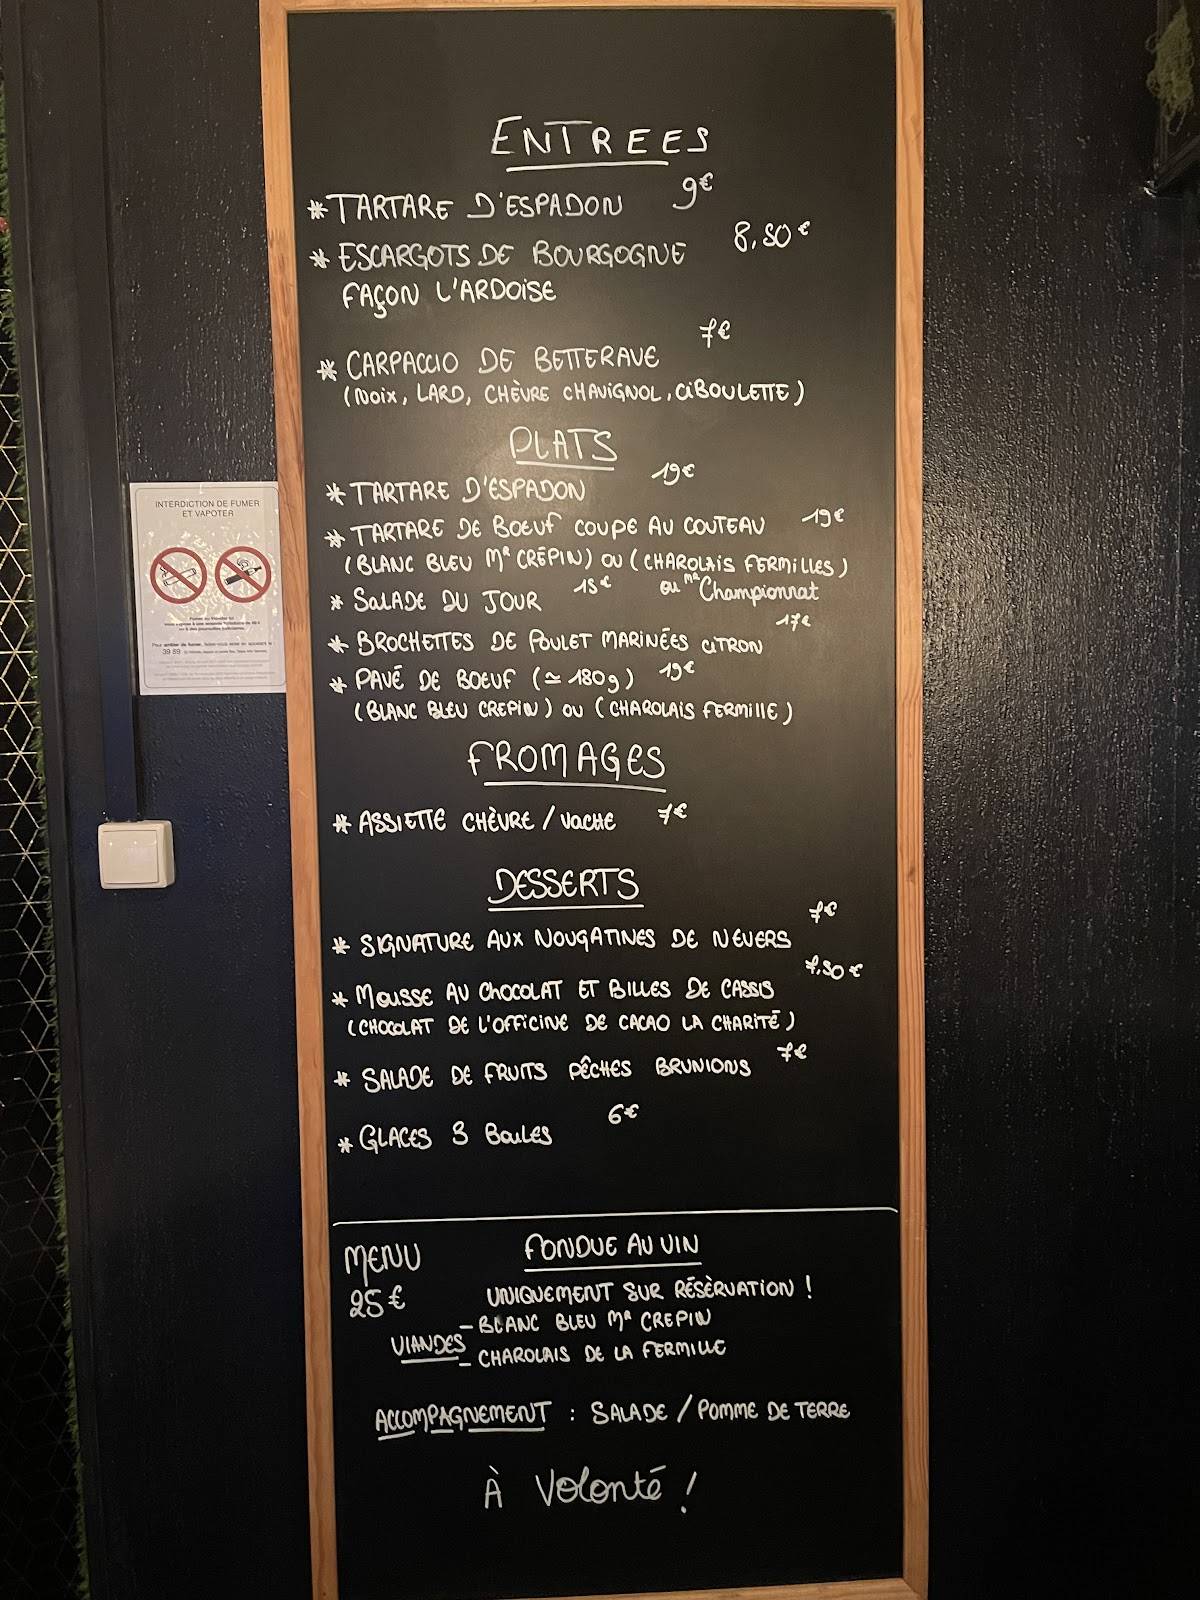 ENTREES
* TARTARE D'ESPADON 9€
* ESCARGOTS DE BOURGOGNE 8,50€
FAÇON L'ARDOISE
* CARPACCIO DE BETTERAVE 7€
(NOIX, LARD, CHÈVRE CHAVIGNOL, CIBOULETTE)
PLATS
* TARTARE D'ESPADON 19€
* TARTARE DE BOEUF COUPE AU COUTEAU 19€
(BLANC BLEU Mʳ CRÉPIN) OU (CHAROLAIS FERMILLES)
ou Championnat
* SALADE DU JOUR 15€
* BROCHETTES DE POULET MARINÉES CITRON 17€
* PAVÉ DE BOEUF (≃ 180g) 19€
(BLANC BLEU CREPIN) OU (CHAROLAIS FERMILLE)
FROMAGES
* ASSIETTE CHÈVRE / VACHE 7€
DESSERTS
* SIGNATURE AUX NOUGATINES DE NEVERS 7€
* MOUSSE AU CHOCOLAT ET BILLES DE CASSIS 7,50€
(CHOCOLAT DE L'OFFICINE DE CACAO LA CHARITÉ)
* SALADE DE FRUITS PÊCHES BRUNIONS 7€
* GLACES 3 BOULES 6€
MENU
25€
FONDUE AU VIN
UNIQUEMENT SUR RÉSÈRVATION !
VIANDES
- BLANC BLEU Mʳ CREPIN
- CHAROLAIS DE LA FERMILLE
ACCOMPAGNEMENT : SALADE / POMME DE TERRE
À Volonté !
INTERDICTION DE FUMER
ET VAPOTER
39 89